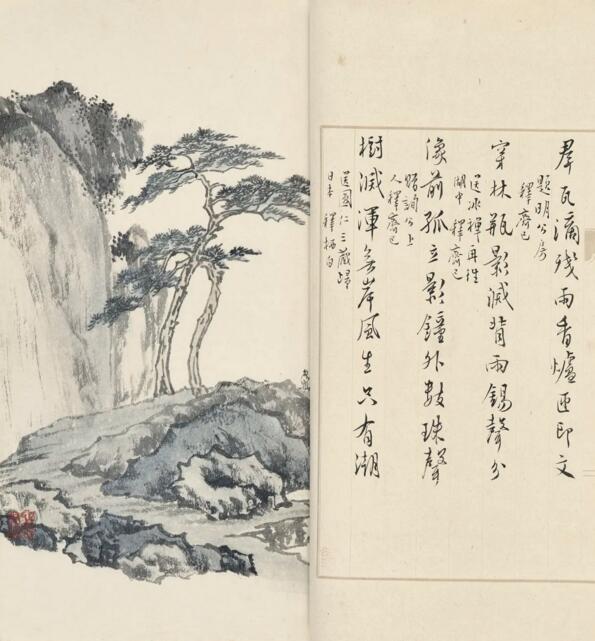 羣瓦滴殘雨香爐匝印文
題明公房
釋齊己
穿林瓶影滅背雨錫聲分
送冰禪再往
湖中 釋齊己
像前孤立影鐘外數珠聲
贈詢公上
人釋齊己
樹滅渾無岸風生只有潮
送圓仁三藏歸
日本 釋栖白